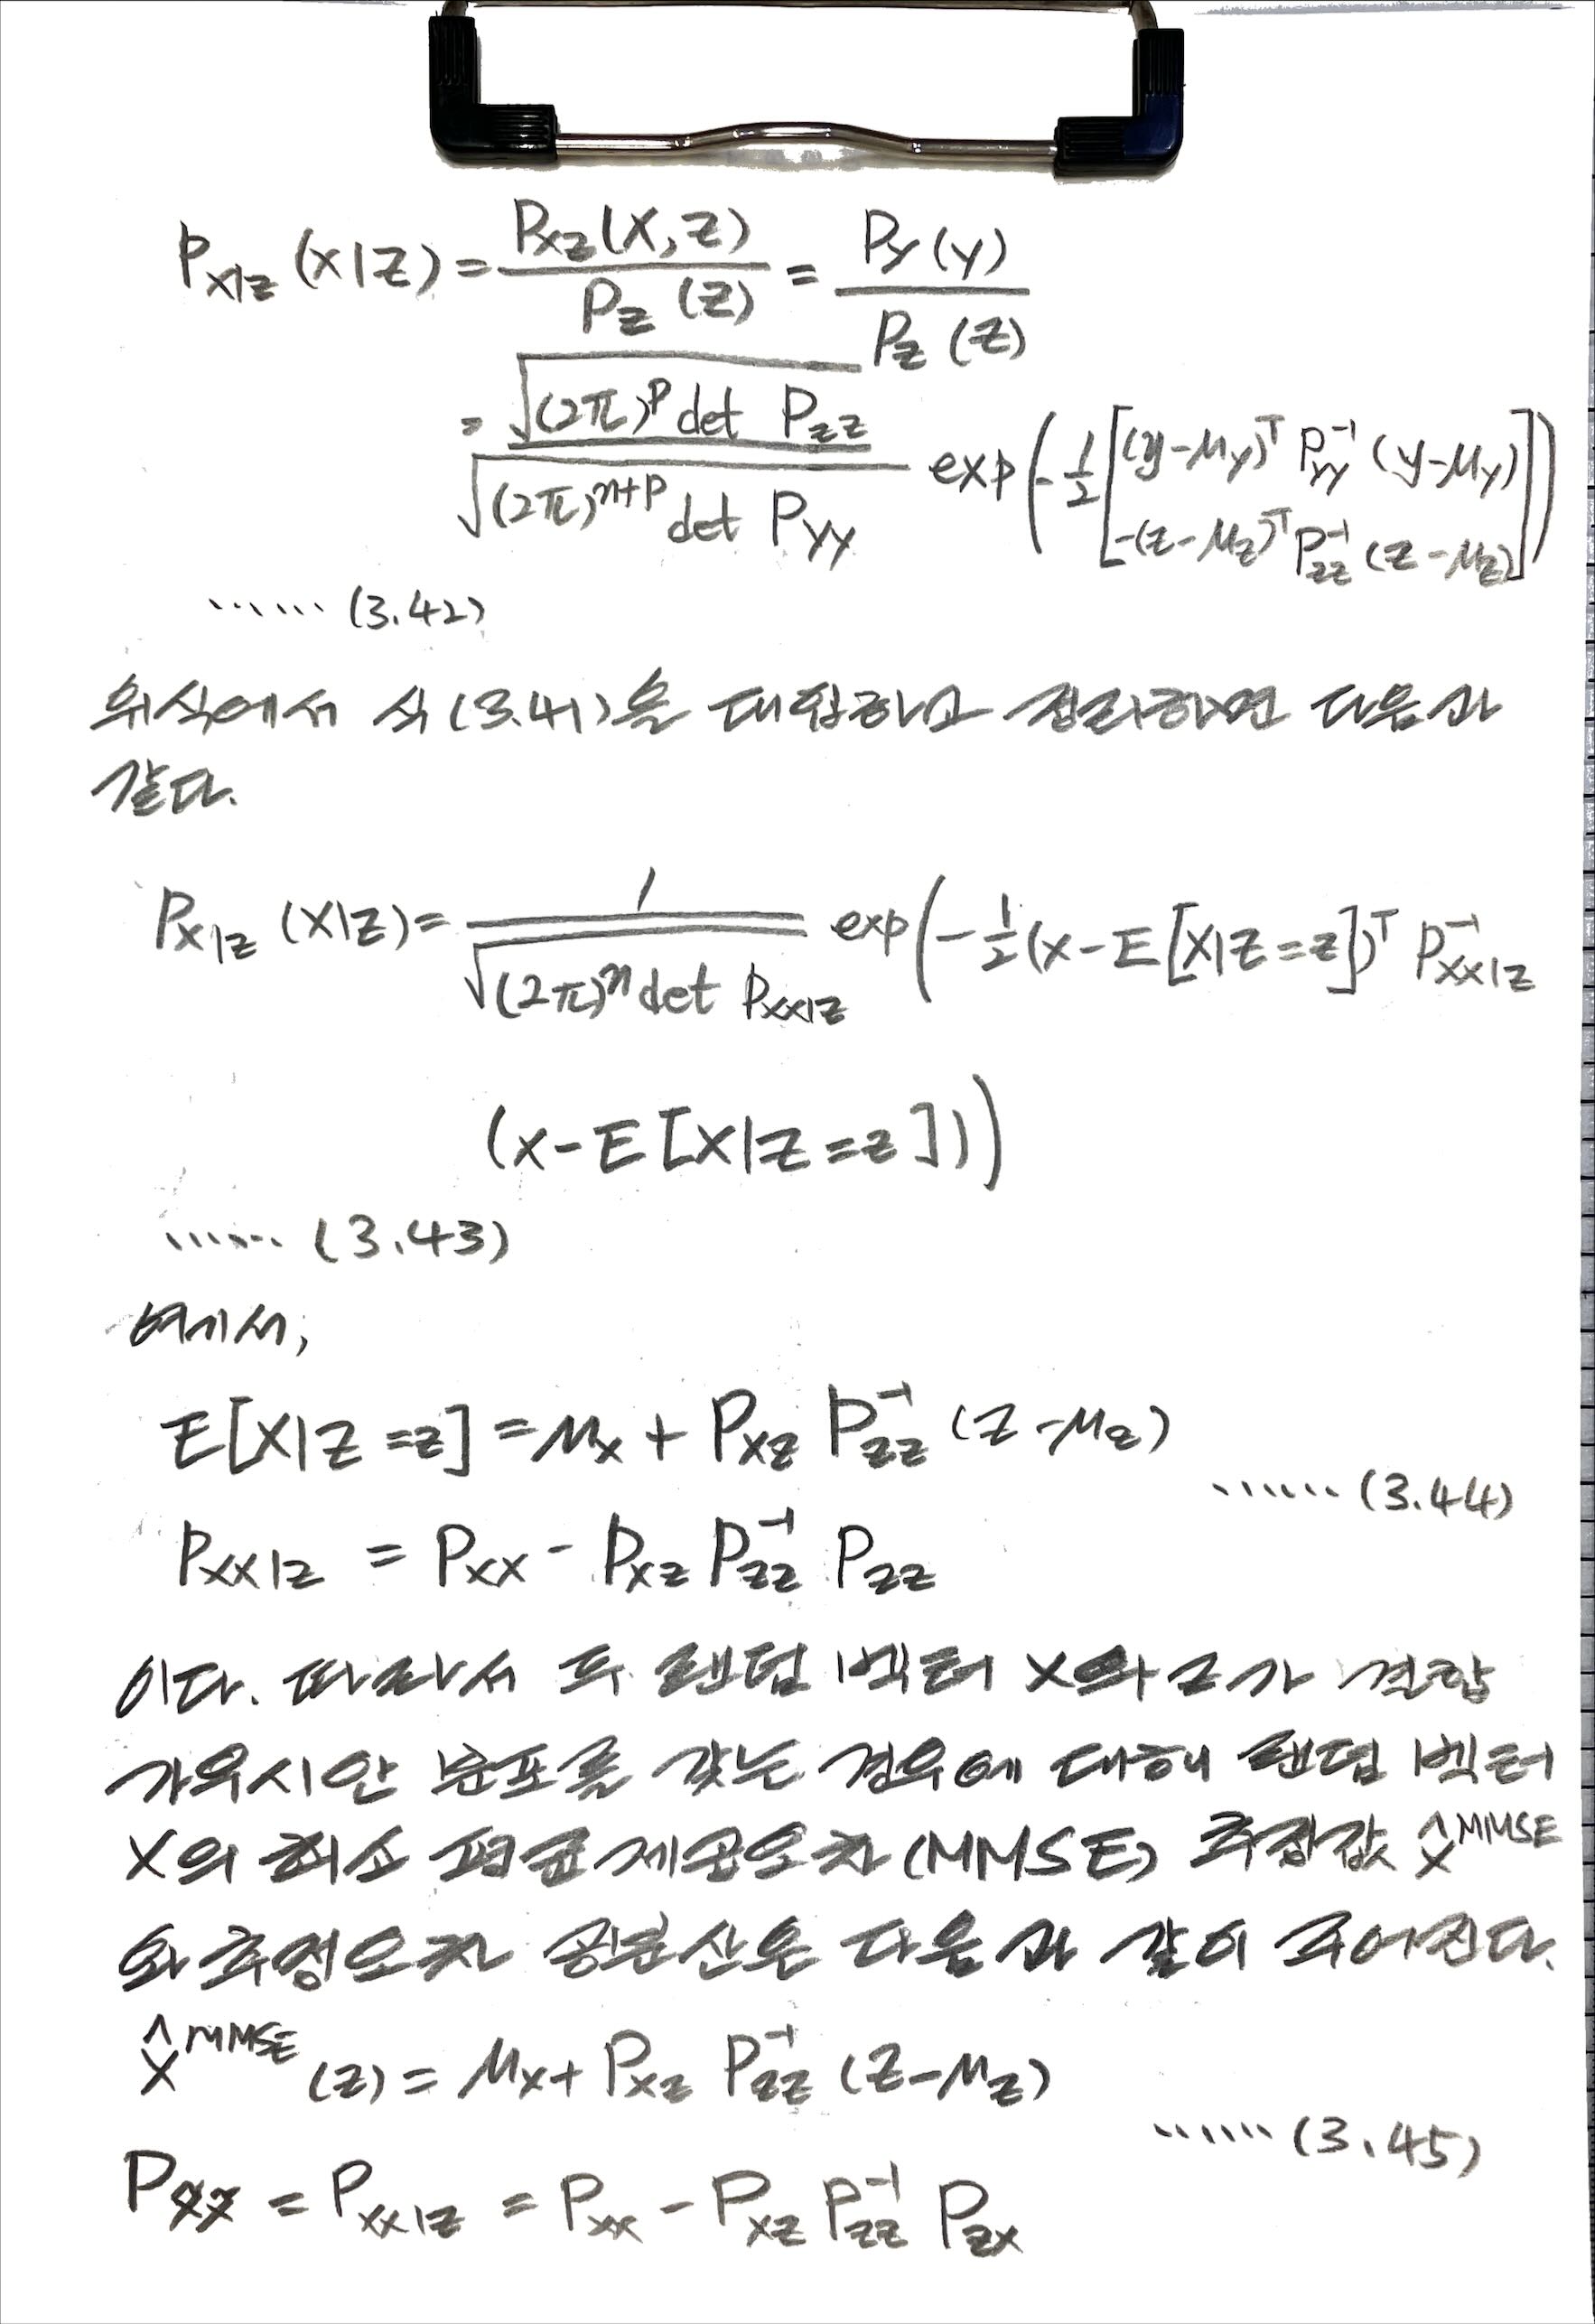 P_{X|Z}(x|z) = \frac{P_{XZ}(x,z)}{P_Z(z)} = \frac{P_Y(y)}{P_Z(z)}
= \frac{\sqrt{(2π)^p det P_{ZZ}}}{\sqrt{(2π)^{n+p} det P_{YY}}} exp(-\frac{1}{2}[(y-μ_Y)^T P_{YY}^{-1} (y-μ_Y) -(z-μ_Z)^T P_{ZZ}^{-1} (z-μ_Z)])
...... (3.42)
위식에서 식(3.41)을 대입하고 정리하면 다음과
같다.
P_{X|Z}(x|z) = \frac{1}{\sqrt{(2π)^n det P_{XX|Z}}} exp(-\frac{1}{2}(x-E[X|Z=z])^T P_{XX|Z}^{-1}
(x-E[X|Z=z]))
...... (3.43)
여기서,
E[X|Z=z] = μ_X + P_{XZ} P_{ZZ}^{-1} (z-μ_Z)
...... (3.44)
P_{XX|Z} = P_{XX} - P_{XZ} P_{ZZ}^{-1} P_{ZZ}
이다. 따라서 두 랜덤 벡터 X와 Z가 결합
가우시안 분포를 갖는 경우에 대해 랜덤 벡터
X의 최소 평균제곱오차(MMSE) 추정값 \hat{x}^{MMSE}
와 추정오차 공분산은 다음과 같이 주어진다.
\hat{x}^{MMSE}(z) = μ_X + P_{XZ} P_{ZZ}^{-1} (z-μ_Z)
...... (3.45)
P_{\tilde{x}\tilde{x}} = P_{XX|Z} = P_{XX} - P_{XZ} P_{ZZ}^{-1} P_{ZX}